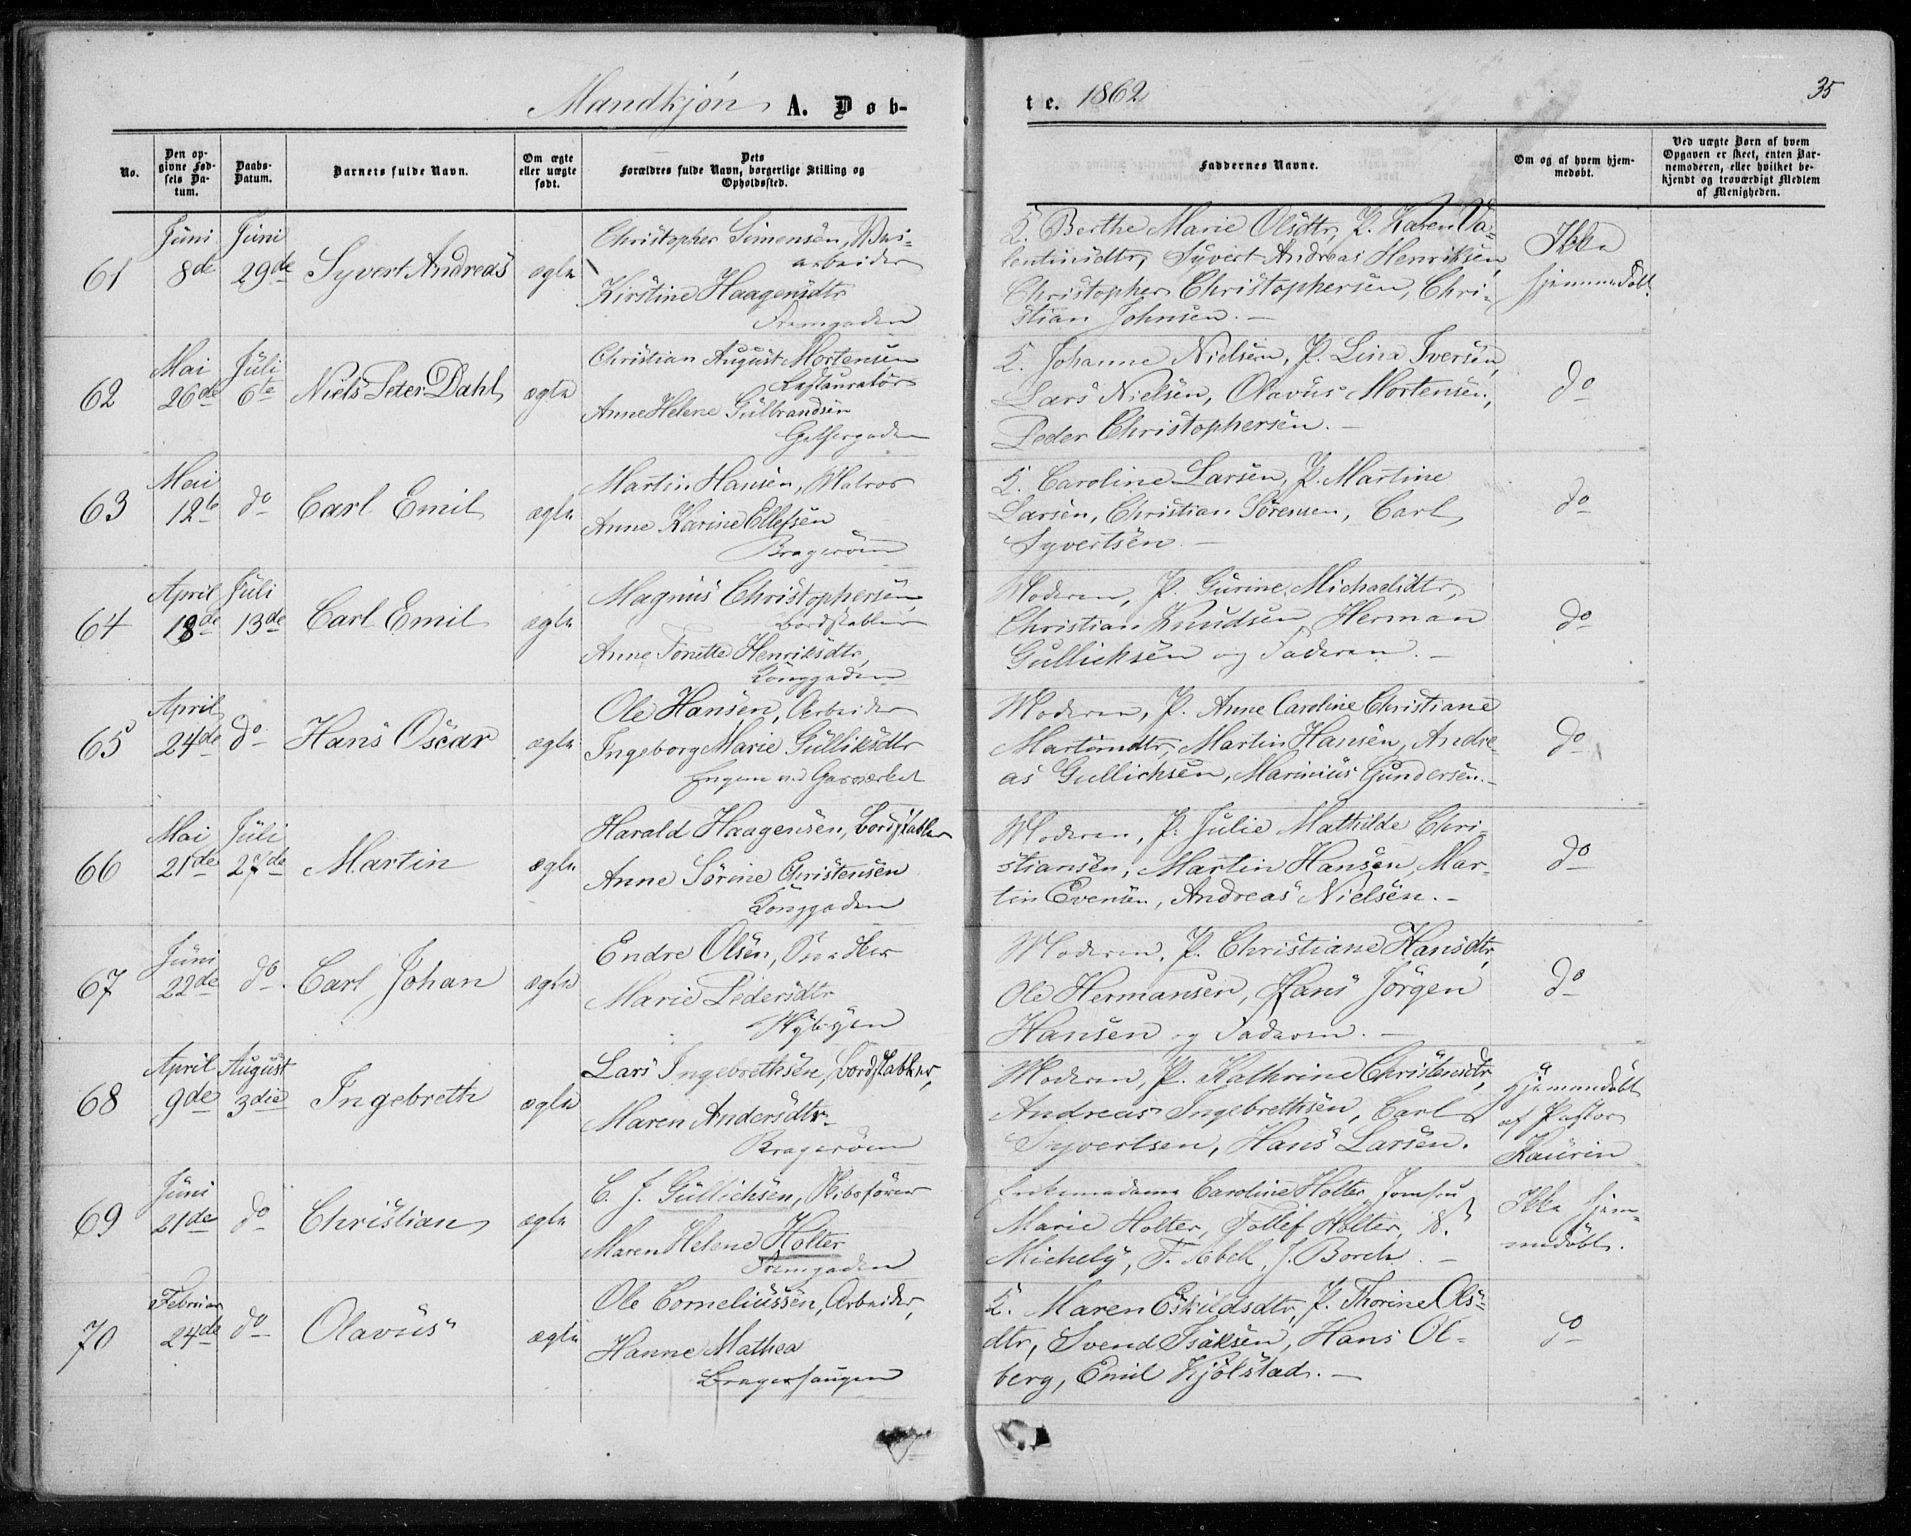 Mandkjøn, A. Døb-
te. 1862
35
No.
Den opgivne Fødsels Datum.
Daabs-Datum.
Barnets fulde Navn.
Om ægte eller uægte født.
Dets Forældres fulde Navn, borgerlige Stilling og Opholdsted.
Faddernes Navne.
Om og af hvem hjemmedøbt.
Ved uægte Børn af hvem Opgaven er skeet, enten Barnemoderen, eller hvilket bekjendt og troværdigt Medlem af Menigheden.
61 Juni 8de Juni 29de Syvert Andreas ægte
Christopher Simensen,
arbeider
Kirstine Haagensdtr
Strømgaden
K. Berthe Marie Olsdtr, P. Karen Va-
lentinsdtr, Syvert Andreas Henriksen,
Christopher Christophersen, Chri-
stian Johnsen. —
Ikke
hjemmedøbt
62 Mai 26de Juli 6te Niels Peter Dahl ægte
Christian August Mortensen
Restauratør
Anne Helene Gulbrandsen
K. Johanne Nielsen, P. Lina Iversen,
Lars Nielsen, Olavus Mortensen,
Peder Christophersen. —
do
63 Mai 12te do Carl Emil ægte
Martin Hansen, Matros
Anne Karine Ellefsen
Bragerøen
K. Caroline Larsen, P. Martine
Larsen, Christian Sørensen, Carl
Syvertsen —
do
64 April 18de Juli 13de Carl Emil ægte
Magnus Christophersen,
Bordstabler
Anne Tonette Henriksdtr,
Konggaden
Moderen, P. Gurine Michaelsdtr,
Christian Knudsen, Herman
Gullicksen og Faderen. —
do
65 April 24de do Hans Oscar ægte
Ole Hansen, Arbeider
Ingeborg Marie Gulliksdtr
Engene ved Gasværket
Moderen, P. Anne Caroline Christiane
Martinsdtr, Martin Hansen, Andre-
as Gullichsen, Marinius Gundersen. —
do
66 Mai 21de Juli 27de Martin ægte
Harald Haagensen, Bordstabler
Anne Sørine Christensen
Konggaden
Moderen, P. Julie Mathilde Chri-
stiansen, Martin Hansen, Mar-
tin Evensen, Andreas Nielsen. —
do
67 Juni 22de do Carl Johan ægte
Endre Olsen, Snedker
Marie Pedersdtr
Nybyen
Moderen, P. Christiane Hansdtr,
Ole Hermansen, Hans Jørgen
Hansen og Faderen. —
do
68 April 9de August 3die Ingebreth ægte
Lars Ingebrethsen, Bordstabler,
Maren Andersdtr
Bragerøen
Moderen, P. Kathrine Christensdtr,
Andreas Ingebrethsen, Carl
Syvertsen, Hans Larsen.
Hjemmedøbt
af Pastor
Kaurin
69 Juni 21de do Christian ægte
C. J. Gullichsen, Skibsfører
Maren Helene Holter
Strømgaden
Enkemadame Caroline Holter, Jomfru
Marie Holter, Tollef Holter, N.
Michely, F. Abel, J. Borch. —
Ikke hjem-
medøbt.
70 Februar 24de do Olavus ægte
Ole Corneliussen, Arbeider,
Hanne Mathea
Bragerhaugen
K. Maren Eskildsdtr, P. Thorine Ols-
dtr, Svend Isaksen, Hans Ol-
berg, Emil Kjølstad. —
do